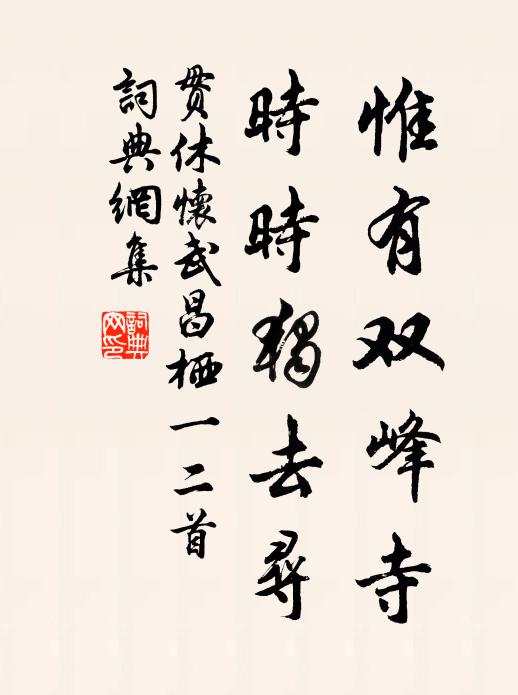 惟有双峰寺
時時獨去尋
贯休懷武昌栖一二首
詞典網集